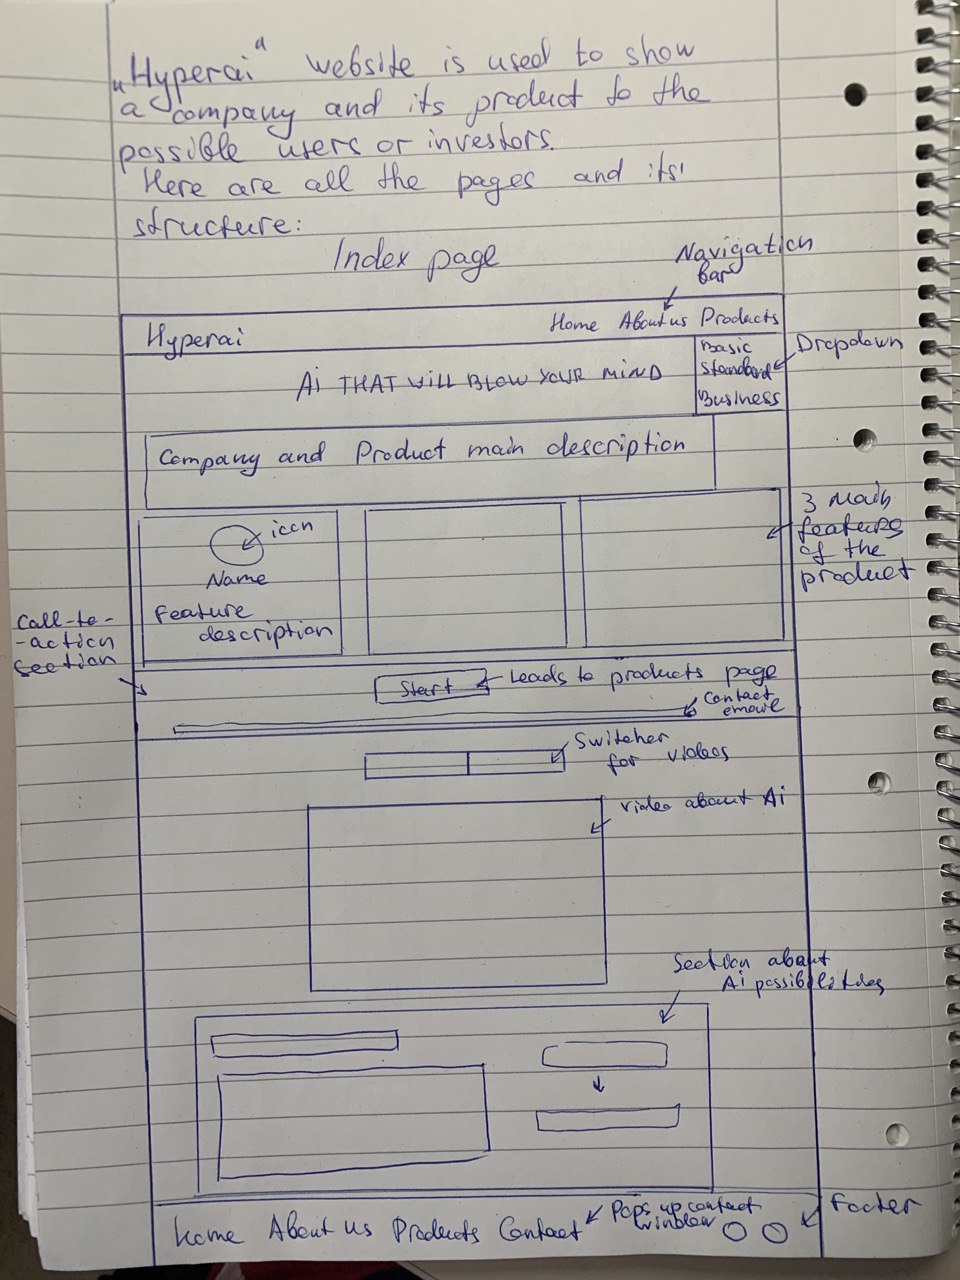 „Hyperai" website is used to show
a company and its product to the
possible users or investors.
Here are all the pages and its'
structure:
Index page
Navigation
bar
Hyperai
Home About us Products
Basic
Standard
Business
Dropdown
Ai THAT WILL BLOW YOUR MIND
Company and Product main description
icon
Name
Feature
description
3 main
features
of the
product
Call-to-
-action
section
Start
Leads to products page
Contact
email
Switcher
for videos
video about Ai
Section about
Ai possibilities
Home About us Products Contact
Pops up contact
window
Footer